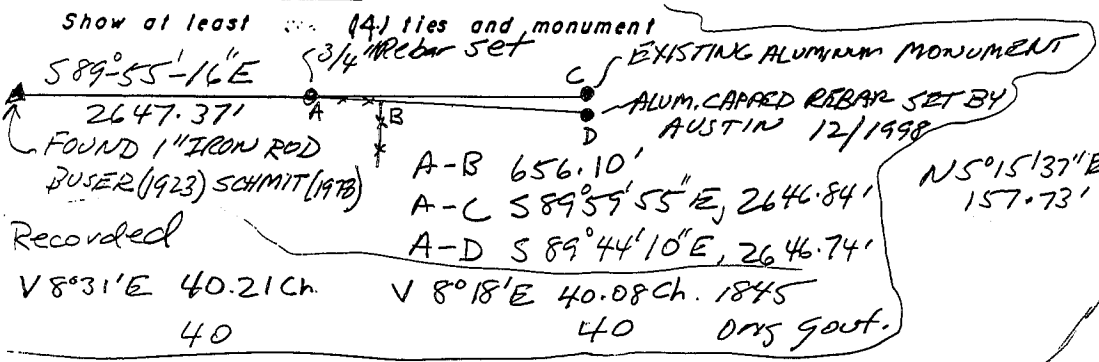 Show at least (4) ties and monument
3/4" Rebar set
S 89°-55'-16" E
2647.37'
EXISTING ALUMINUM MONUMENT
C
A
B
D
ALUM. CAPPED REBAR SET BY
AUSTIN 12/1998
FOUND 1" IRON ROD
BUSER (1923) SCHMIT (1978)
A-B 656.10'
A-C S 89°59'55" E, 2646.84'
A-D S 89°44'10" E, 2646.74'
N 5°15'37" E
157.73'
Recorded
V 8°31' E 40.21 Ch. V 8°18' E 40.08 Ch. 1845
40 40 Orig Gout.